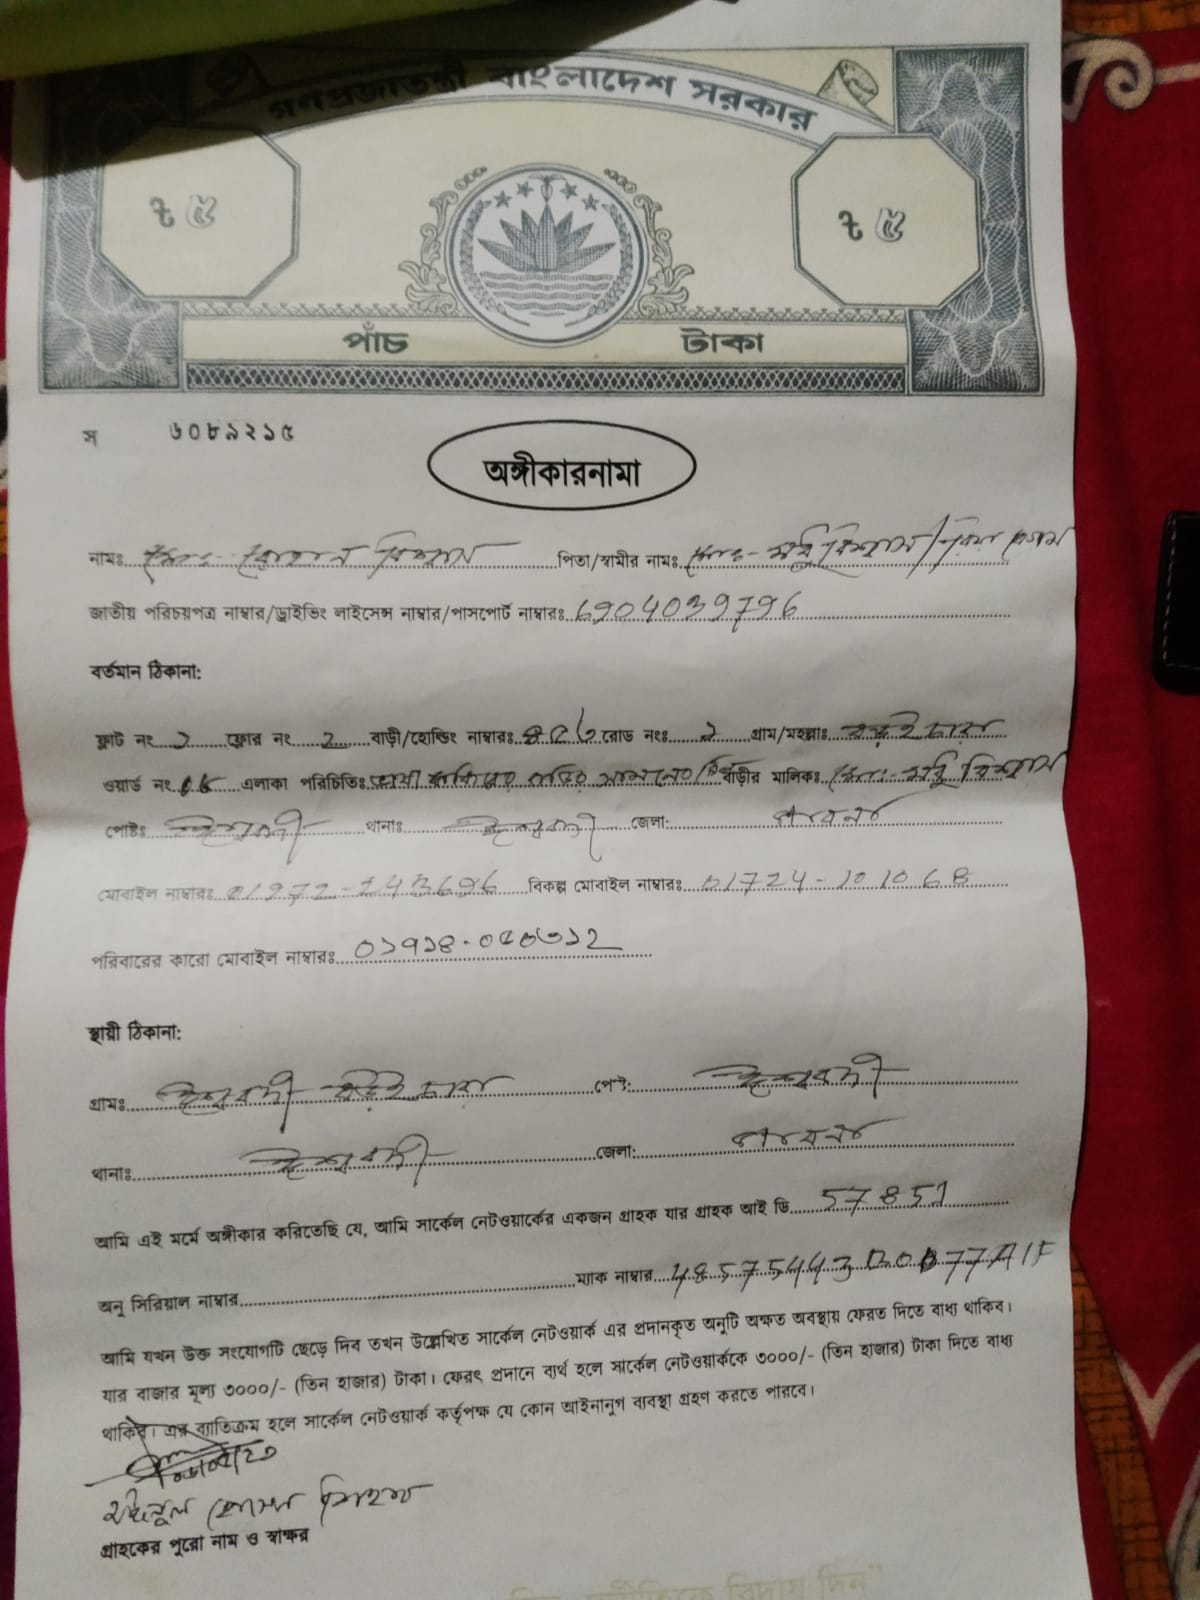 গণপ্রজাতন্ত্রী বাংলাদেশ সরকার
৳ ৫ ৳ ৫
পাঁচ টাকা
স ৬০৮৯২১৫
অঙ্গীকারনামা
নামঃ মোঃ- বিশ্বাস পিতা/স্বামীর নামঃ মোঃ-
জাতীয় পরিচয়পত্র নাম্বার/ড্রাইভিং লাইসেন্স নাম্বার/পাসপোর্ট নাম্বারঃ 6904039796
বর্তমান ঠিকানা:
ফ্লাট নং ২ ফ্লোর নং ২ বাড়ী/হোল্ডিং নাম্বারঃ রোড নংঃ ২ গ্রাম/মহল্লাঃ
ওয়ার্ড নং এলাকা পরিচিতিঃ বাড়ীর মালিকঃ মোঃ- বিশ্বাস
পোষ্টঃ ঈশ্বরদী থানাঃ ঈশ্বরদী জেলা: পাবনা
মোবাইল নাম্বারঃ 01972-143696 বিকল্প মোবাইল নাম্বারঃ 01724-101068
পরিবারের কারো মোবাইল নাম্বারঃ
স্থায়ী ঠিকানা:
গ্রামঃ ঈশ্বরদী পোষ্ট: ঈশ্বরদী
থানাঃ ঈশ্বরদী জেলা: পাবনা
আমি এই মর্মে অঙ্গীকার করিতেছি যে, আমি সার্কেল নেটওয়ার্কের একজন গ্রাহক যার গ্রাহক আই ডি 57851
অনু সিরিয়াল নাম্বার ম্যাক নাম্বার
আমি যখন উক্ত সংযোগটি ছেড়ে দিব তখন উল্লেখিত সার্কেল নেটওয়ার্ক এর প্রদানকৃত অনুটি অক্ষত অবস্থায় ফেরত দিতে বাধ্য থাকিব।
যার বাজার মূল্য ৩০০০/- (তিন হাজার) টাকা। ফেরৎ প্রদানে ব্যর্থ হলে সার্কেল নেটওয়ার্ককে ৩০০০/- (তিন হাজার) টাকা দিতে বাধ্য
থাকিব। এর ব্যাতিক্রম হলে সার্কেল নেটওয়ার্ক কর্তৃপক্ষ যে কোন আইনানুগ ব্যবস্থা গ্রহণ করতে পারবে।
গ্রাহকের পুরো নাম ও স্বাক্ষর